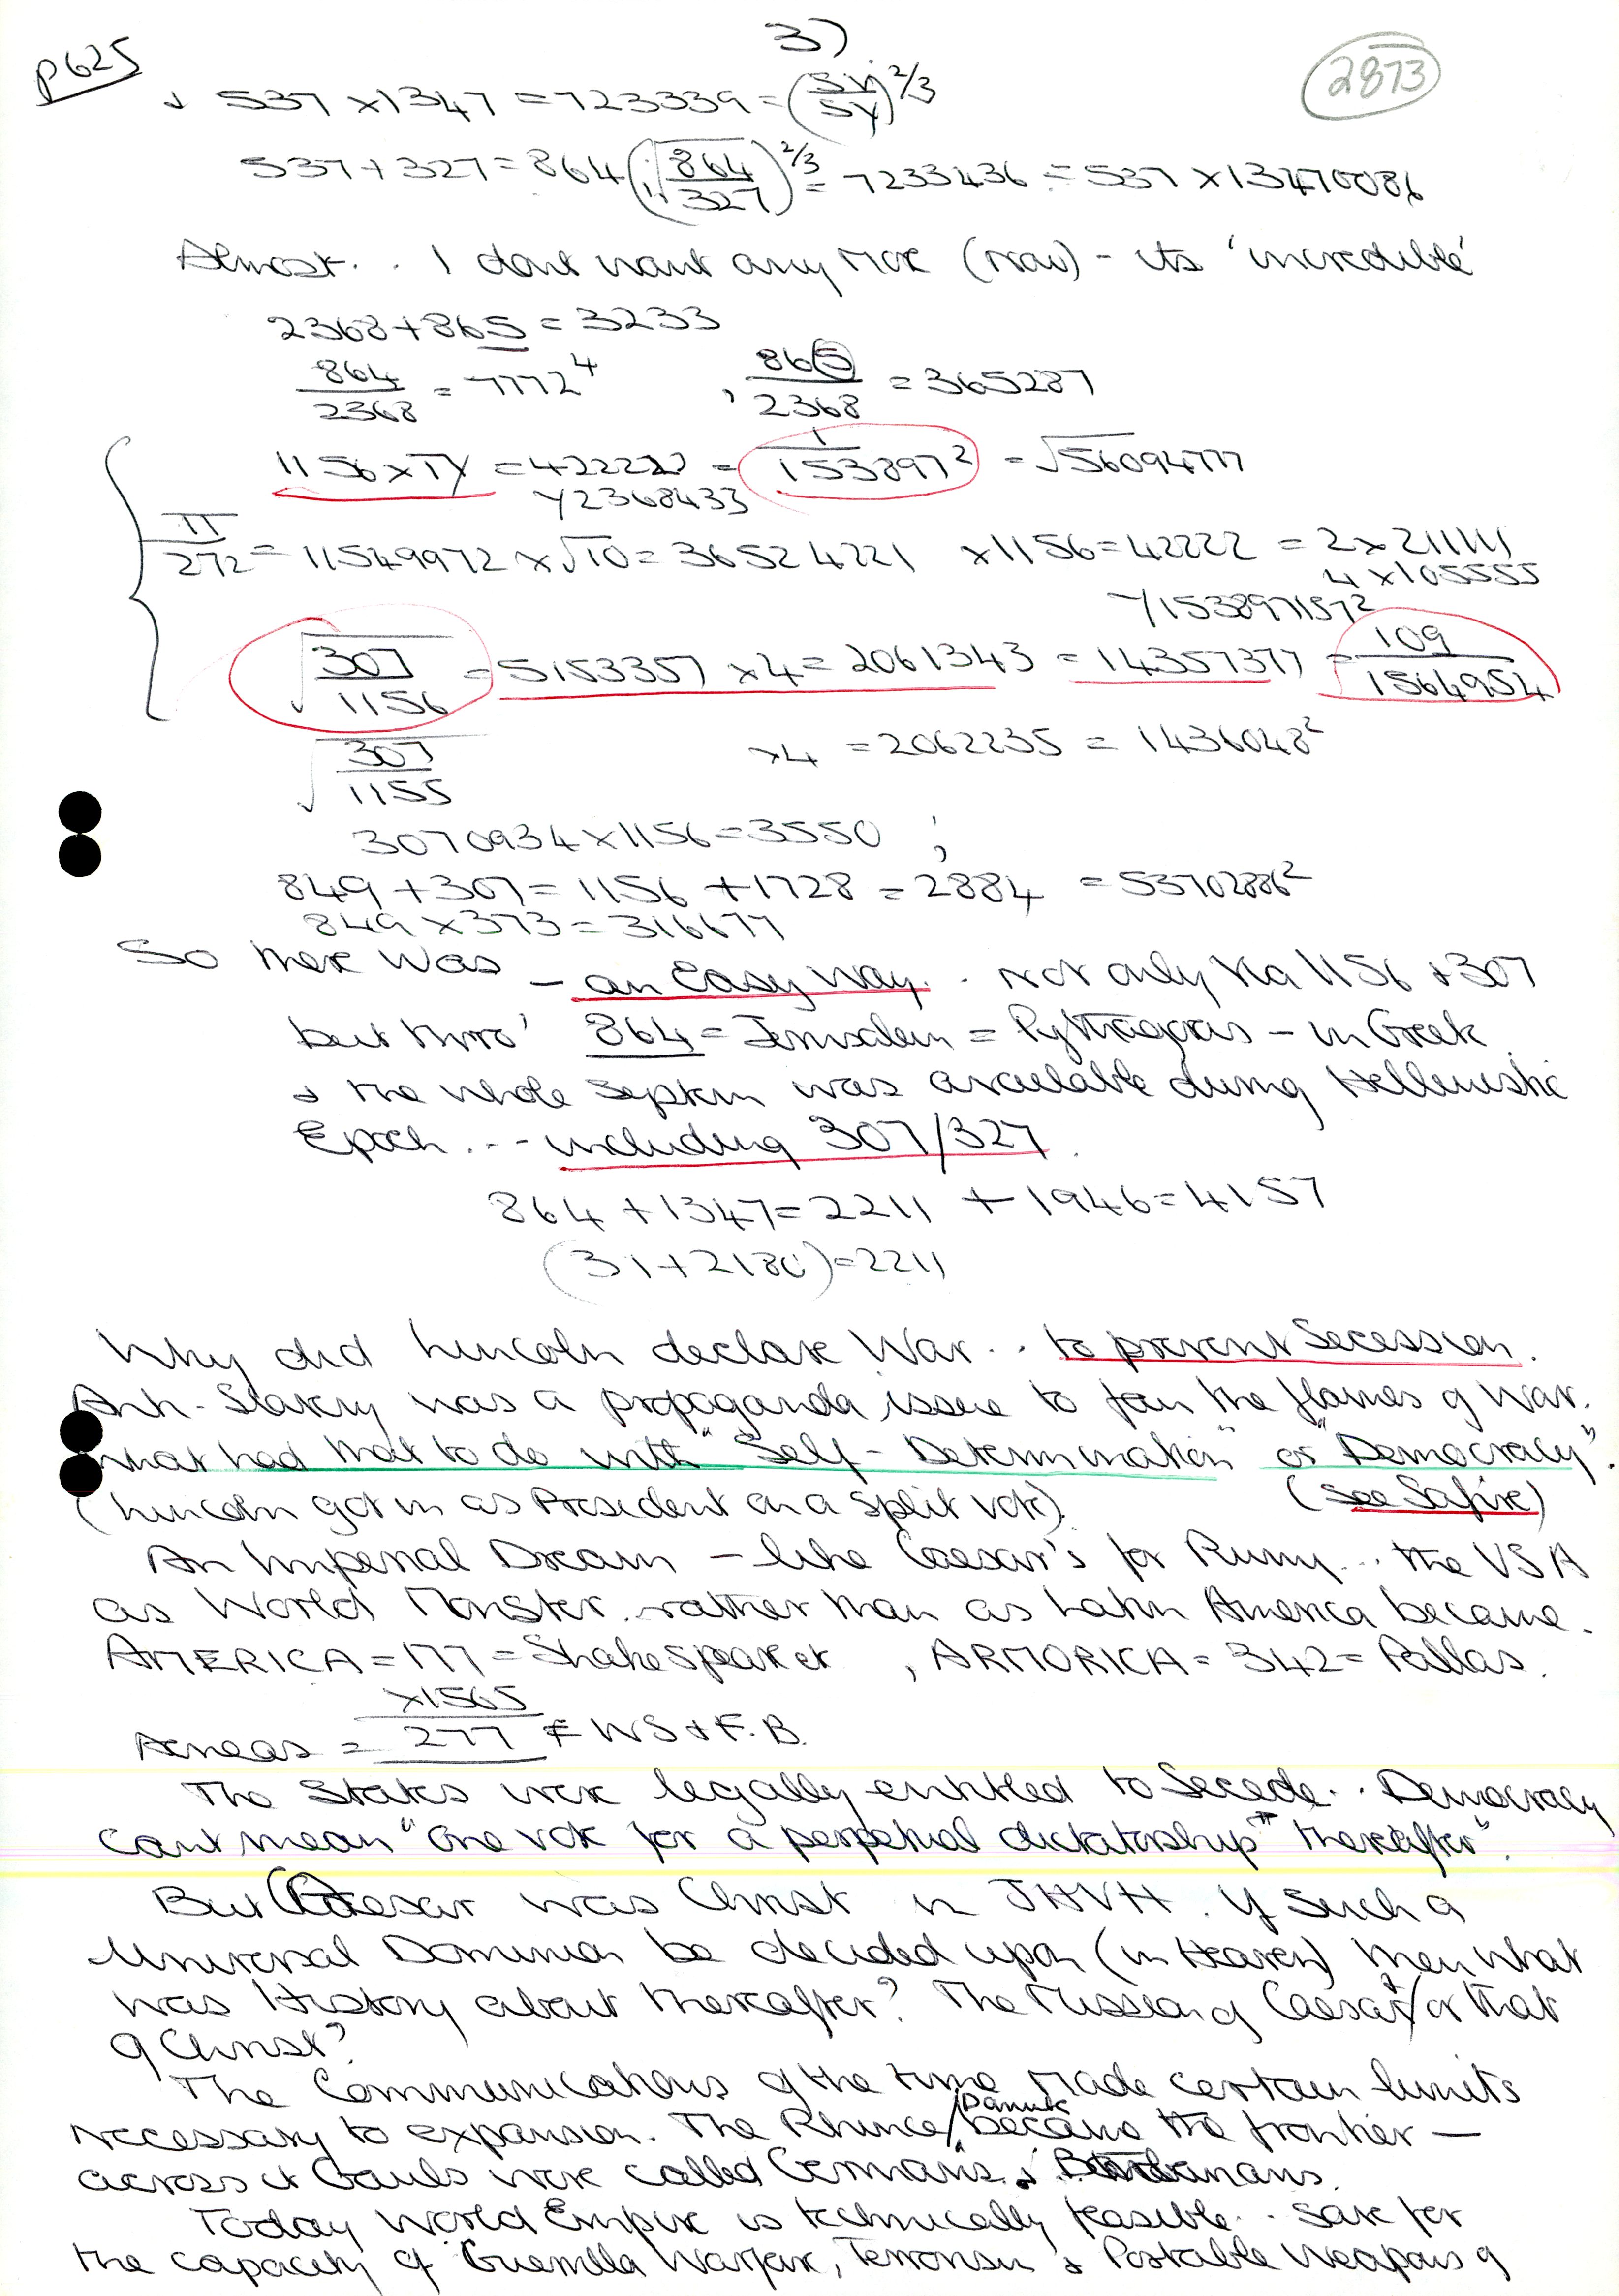 3)
p625
2873
& 537 × 1347 = 723339 = (/5y)^2/3
537 + 327 = 864 (√864/327)^2/3 = 7233436 = 537 × 13470086
Almost.. I dont want any more (now) - its 'incredible'
2368 + 865 = 3233
864/2368 = 7772^4 , 865/2368 = 365287
1156 × TY = 422222 = 1/153897² = √56094777
Y2368433
π/272 = 11549972 × √10 = 36524221 × 1156 = 42222 = 2 × 21111
4 × 105555
Y153897157²
√307/1156 = 5153357 × 4 = 2061343 = 14357377 = 109/1564954
√307/1155 ×4 = 2062235 = 1436048²
3070934 × 1156 = 3550 ;
849 + 307 = 1156 + 1728 = 2884 = 53702886²
849 × 373 = 316677
So there was - an Easy Way.. not only via 1156 & 307
but thro' 864 = Jerusalem = Pythagoras - in Greek
& the whole was available during Hellenistic
Epoch... including 307/327.
864 + 1347 = 2211 + 1946 = 4157
(31 + 2180) = 2211
Why did Lincoln declare War.. to prevent Secession.
Anti-Slavery was a propaganda issue to fan the flames of War.
What had that to do with "Self-Determination" or "Democracy".
(Lincoln got in as President on a split vote). (see Safire)
An Imperial Dream - like Caesar's for Rumy... the USA
as World Monster. rather than as Latin America became.
AMERICA = 177 = Shakespeare , ARMORICA = 342 = Pallas.
×1565
Aeneas = 277 = WS & F.B.
The States were legally entitled to Secede.. Democracy
cant mean "One vote for a perpetual dictatorship" thereafter".
But Caesar was Christ in JHVH. If such a
Universal Dominion be decided upon (in Heaven) then what
was History about thereafter? The Mission of Caesar/or that
of Christ?
The Communications of the time made certain limits
necessary to expansion. The Rhine/Danube became the frontier -
across it Gauls were called Germans & Barbarians.
Today World Empire is technically feasible.. save for
the capacity of Guerrilla Warfare, Terrorism & Portable Weapons of